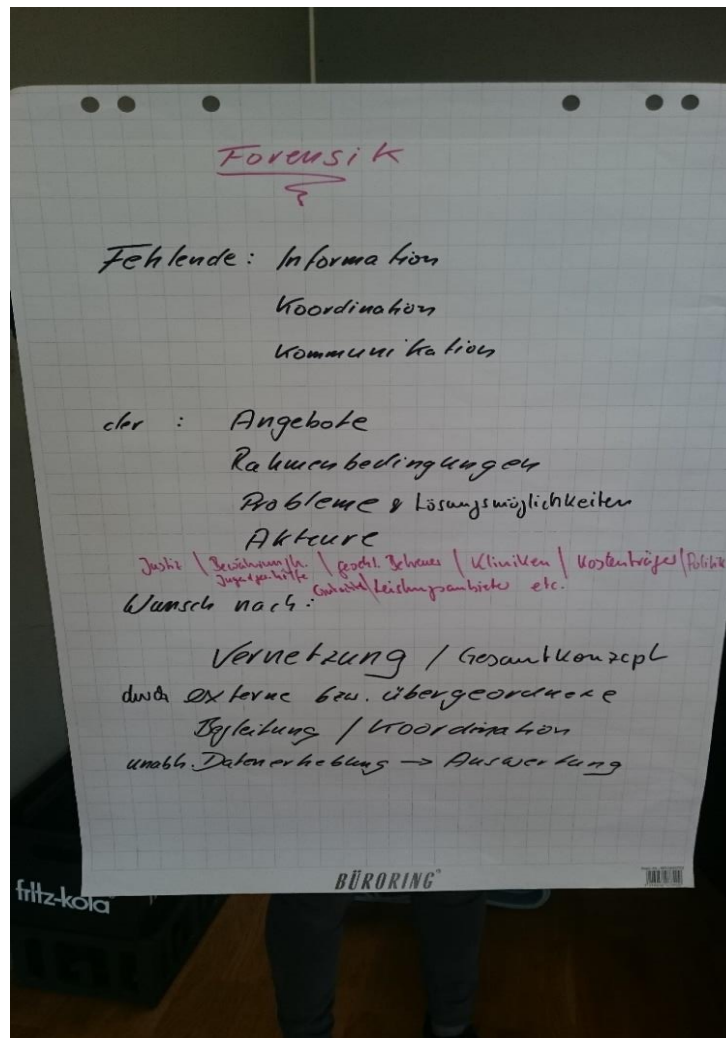 Forensik
Fehlende: Information
Koordination
Kommunikation
der : Angebote
Rahmenbedingungen
Probleme & Lösungsmöglichkeiten
Akteure
Justiz | Bewährungsh. | gesetzl. Betreuer | Kliniken | Kostenträger | Politik
Jugendgerhilfe | Leistungsanbieter etc.
Wunsch nach:
Vernetzung / Gesamtkonzept
durch externe bzw. übergeordnete
Begleitung / Koordination
unabh. Datenerhebung → Auswertung
BÜRORING
fritz-kola